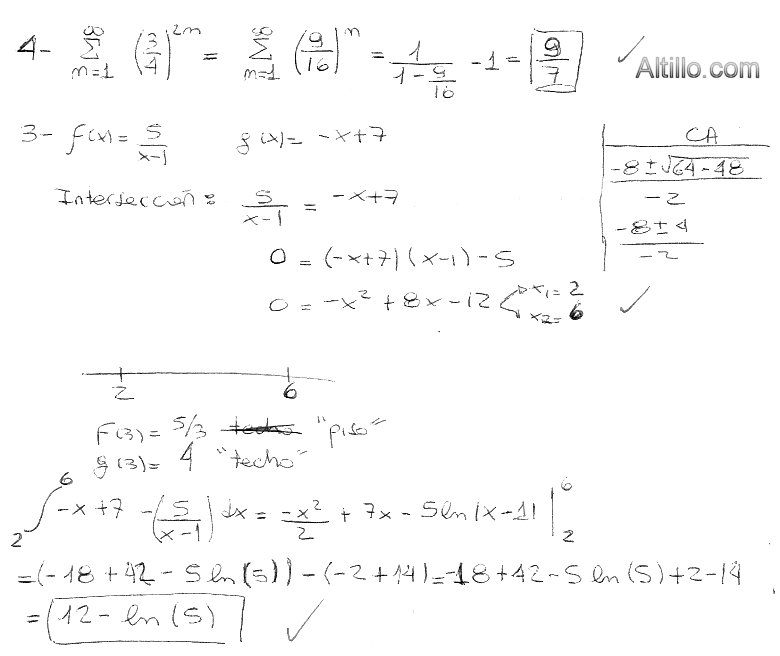 4- ∞ Σ n=1 (3/4)^2n = ∞ Σ n=1 (9/16)^n = 1/(1 - 9/16) - 1 = 9/7 ✓
Altillo.com
3- f(x) = 5/(x-1) g(x) = -x+7
Intersección: 5/(x-1) = -x+7
0 = (-x+7)(x-1) - 5
0 = -x² + 8x - 12 x1 = 2 x2 = 6 ✓
CA
(-8 ± √(64-48))/-2
(-8 ± 4)/-2
2 6
F(3) = 5/3 techo "piso"
g(3) = 4 "techo"
2∫6 -x+7 - (5/(x-1)) dx = -x²/2 + 7x - 5ln|x-1| |2 6
= (-18 + 42 - 5 ln(5)) - (-2+14) = -18+42-5 ln(5) + 2-14
= 12 - ln(5) ✓